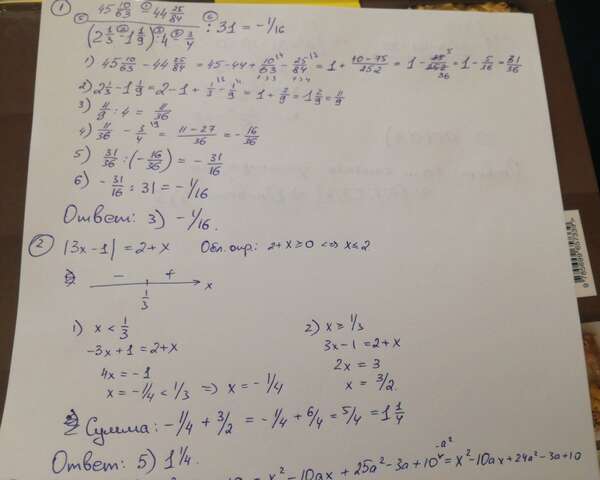 1 45 10/63 - 44 25/84
(2 1/3 - 1 1/9) : 4 - 3/4 : 31 = -1/16
1) 45 10/63 - 44 25/84 = 45 - 44 + 10/63 - 25/84 = 1 + 40-75/252 = 1 - 35/252 = 1 - 5/36 = 31/36
2) 2 1/3 - 1 1/9 = 2 - 1 + 1/3 - 1/9 = 1 + 2/9 = 1 2/9 = 11/9
3) 11/9 : 4 = 11/36
4) 11/36 - 3/4 = 11-27/36 = -16/36
5) 31/36 : (-16/36) = -31/16
6) -31/16 : 31 = -1/16
Ответ: 3) -1/16.
2 |3x-1| = 2+x Обл. опр: 2+x ≥ 0 <=> x ≤ 2
- +
1/3 x
1) x < 1/3 2) x ≥ 1/3
-3x+1 = 2+x 3x-1 = 2+x
4x = -1 2x = 3
x = -1/4 < 1/3 => x = -1/4 x = 3/2
Сумма: -1/4 + 3/2 = -1/4 + 6/4 = 5/4 = 1 1/4
Ответ: 5) 1 1/4.
x² - 10ax + 25a² - 3a + 10 - a² = x² - 10ax + 24a² - 3a + 10